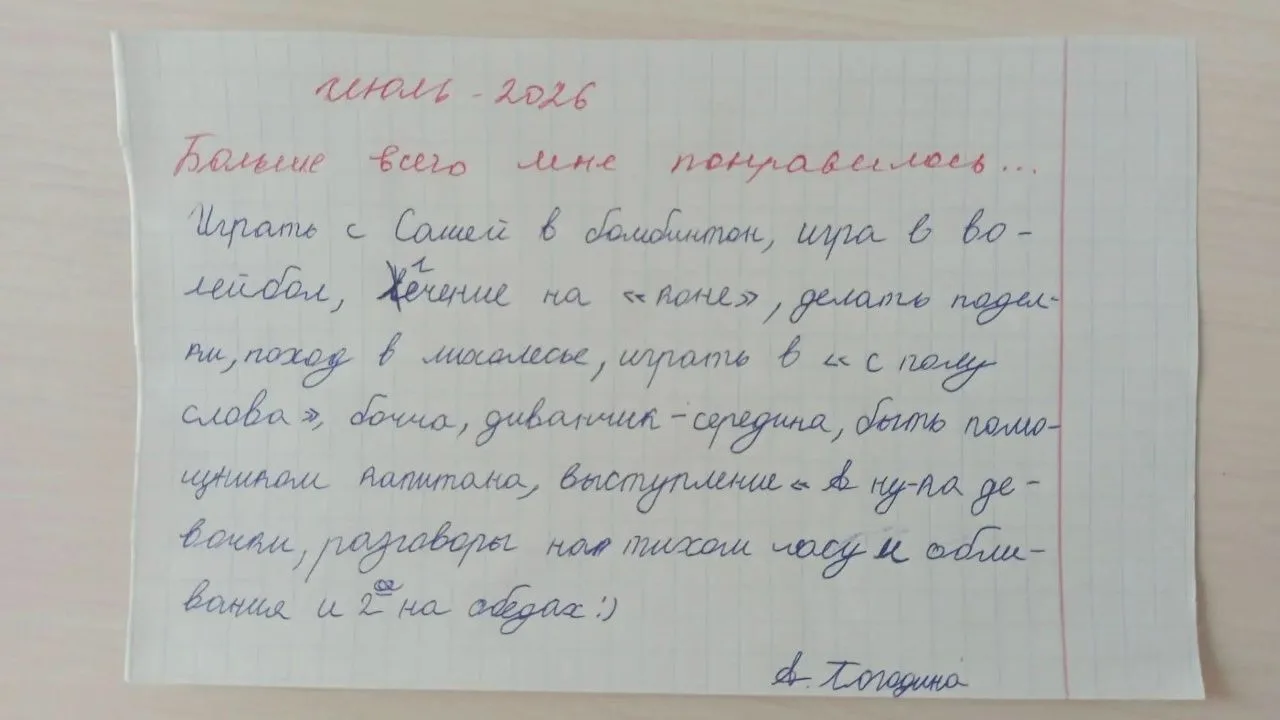 Июль - 2026
Больше всего мне понравилось...
Играть с Сашей в бомбинтон, игра в во-
лейбол, лечение на «поне», делать подел-
ки, поход в михалесье, играть в « с полу
слова», бочча, диванчик-середина, быть помо-
щником капитана, выступление « А ну-ка де-
вочки, разговоры на тихом часу и обли-
вания и 2ое на обедах :)
А. Погодина